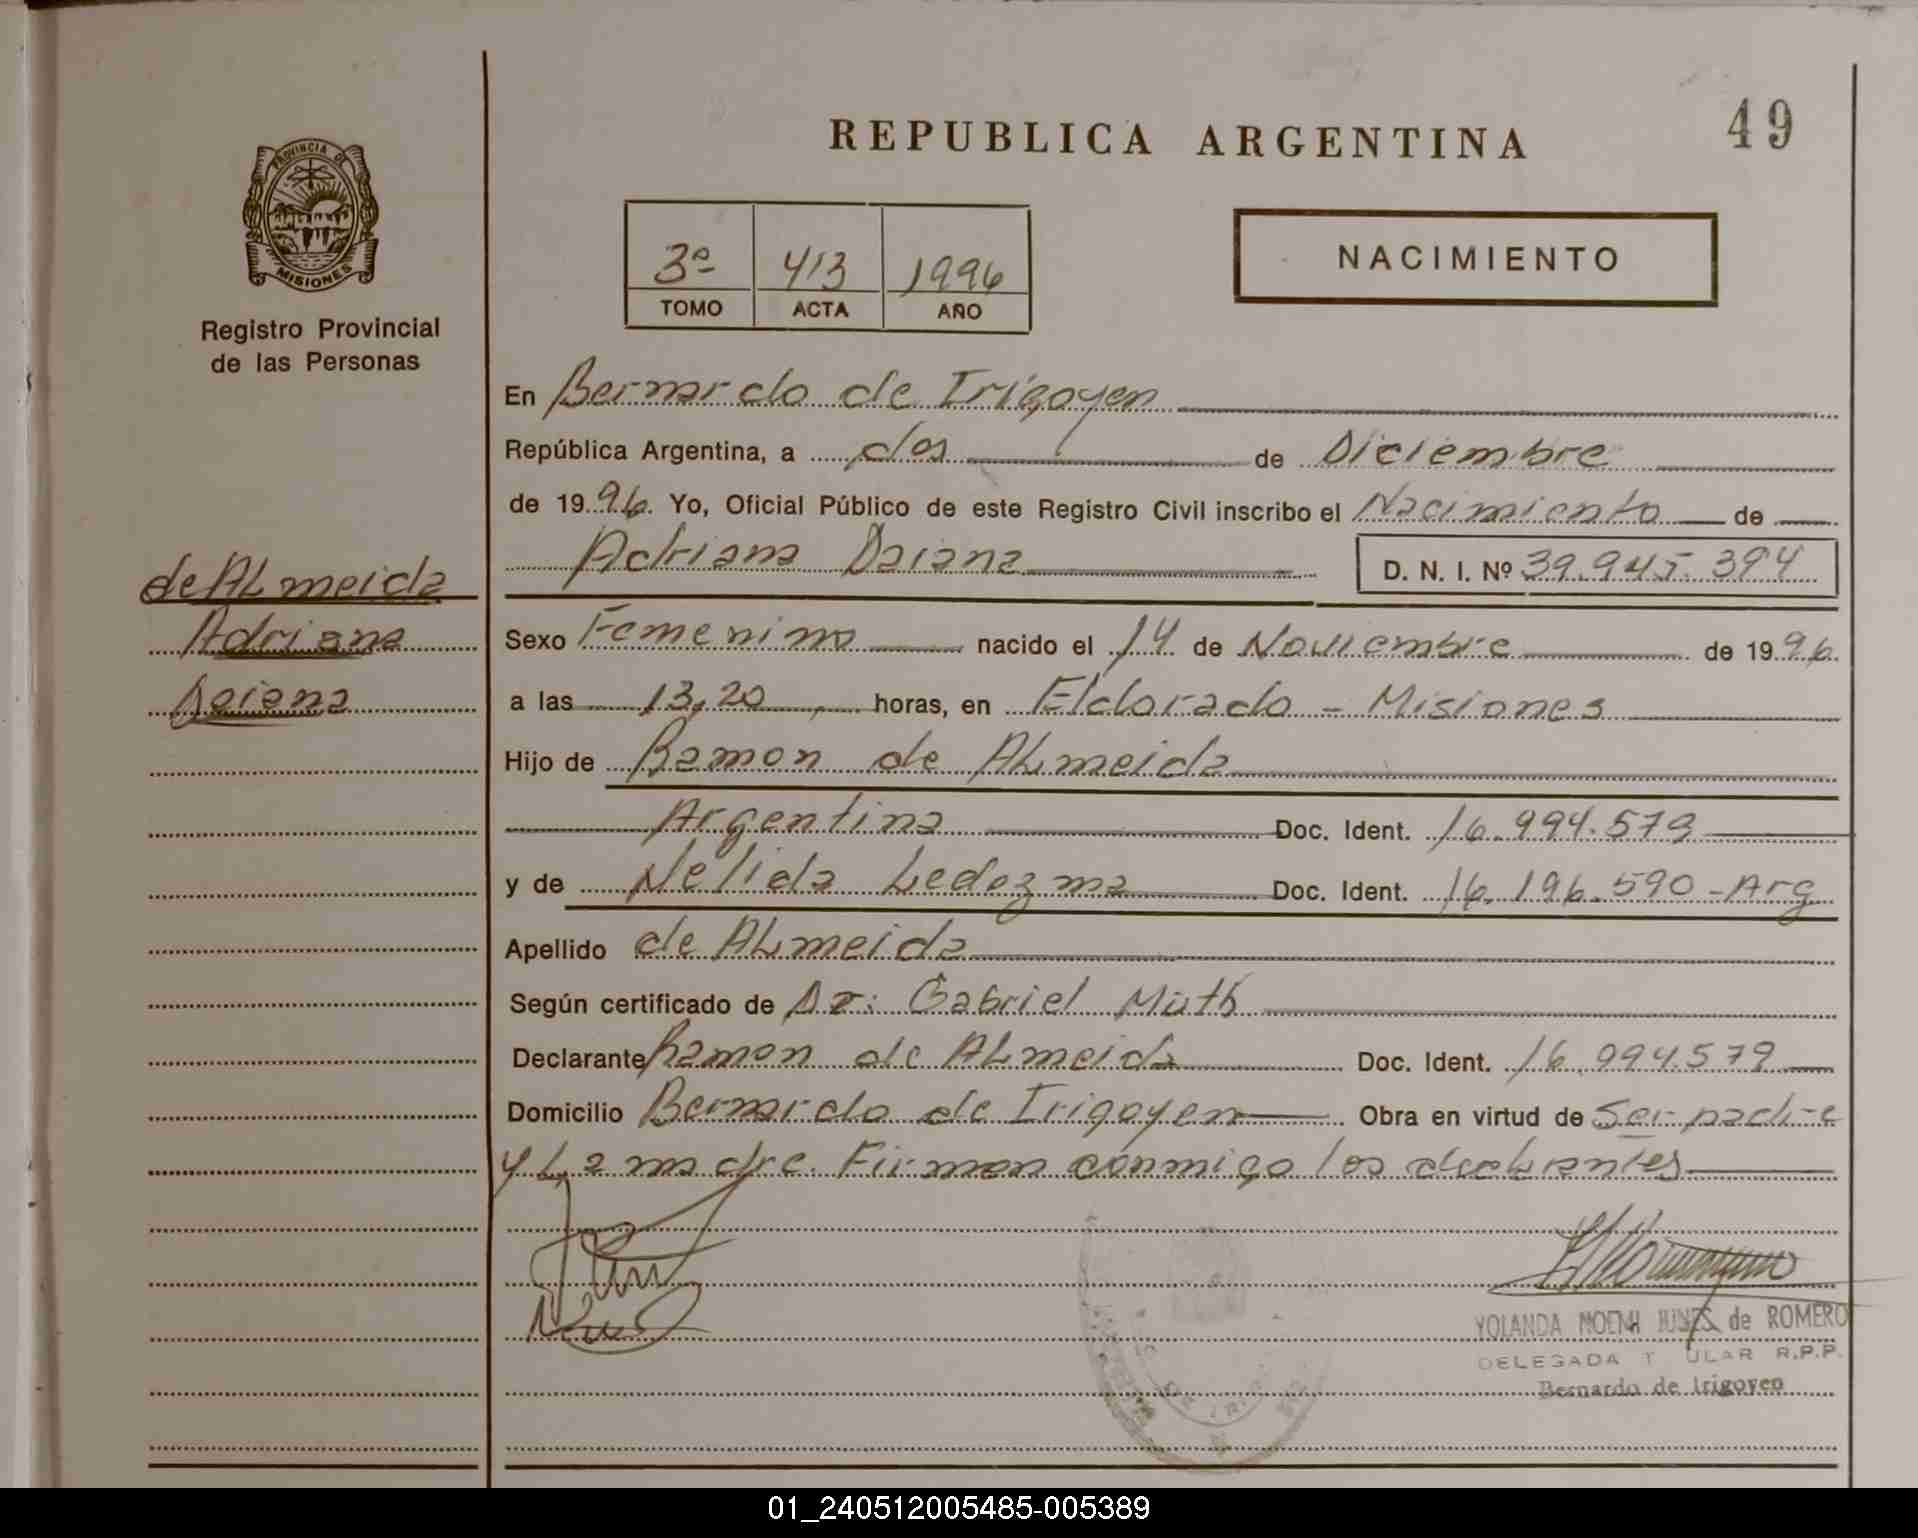 REPUBLICA ARGENTINA
49
PROVINCIA DE
MISIONES
Registro Provincial
de las Personas
3º 413 1996
TOMO ACTA AÑO
NACIMIENTO
En Bernardo de Irigoyen
República Argentina, a dos de Diciembre
de 1996. Yo, Oficial Público de este Registro Civil inscribo el Nacimiento de
Adriana Daiana D. N. I. Nº 39.945.394
de ALmeida
Adriana
Daiana
Sexo Femenino nacido el 14 de Noviembre de 1996.
a las 13,20 horas, en Eldorado - Misiones
Hijo de Ramon de ALmeida
Argentina Doc. Ident. 16.994.579
y de Nelida Ledezma Doc. Ident. 16.196.590 - Arg
Apellido de ALmeida
Según certificado de Dr: Gabriel Müth
Declarante Ramon de ALmeida Doc. Ident. 16.994.579
Domicilio Bernardo de Irigoyen Obra en virtud de Ser padre
y La madre. Firman conmigo los declarantes
YOLANDA NOEMI de ROMERO
DELEGADA R.P.P.
Bernardo de Irigoyen
01_240512005485-005389